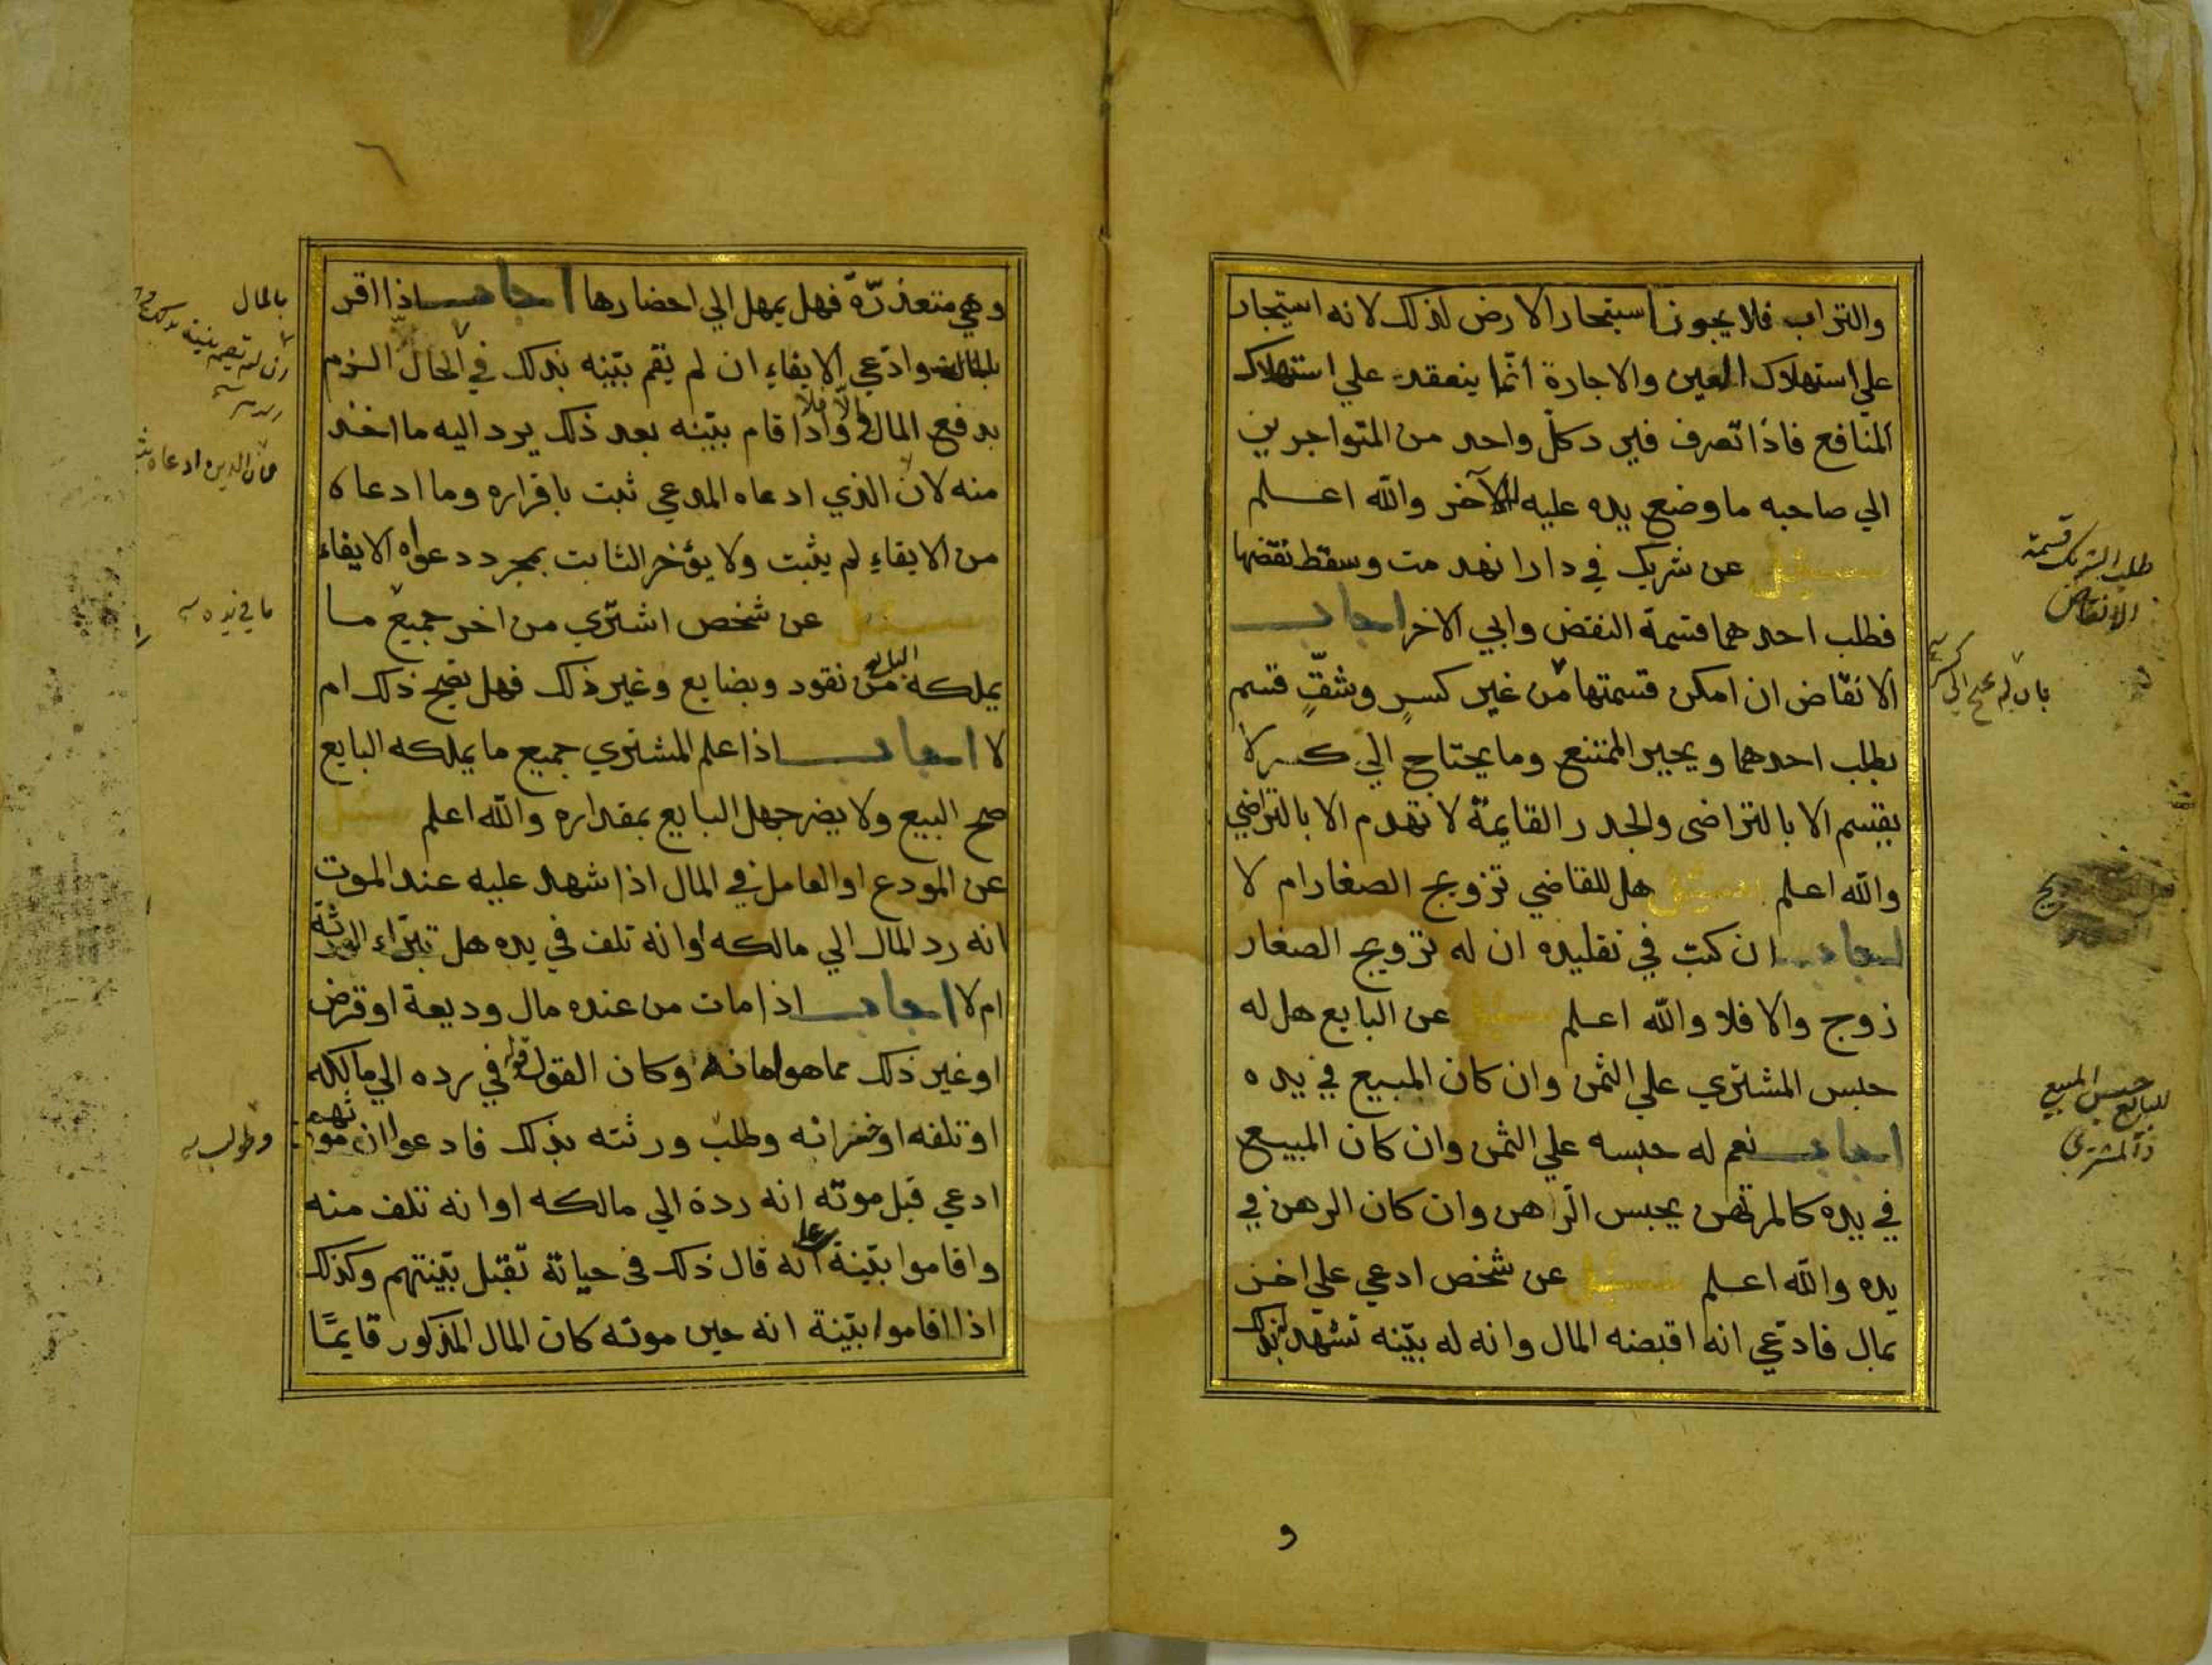 والتراب فلا يجوز استيجار الارض لذلك لانه استيجار
علي استهلاك العين والاجارة انما ينعقد علي استهلاك
المنافع فاذا تصرف فيرد كل واحد من المتواجرين
الي صاحبه ما وضع يده عليه للآخر والله اعلم
سئل عن شريك في دار انهدمت وسقط نقضها
فطلب احدهما قسمة النقض وابي الاخر اجاب
الانقاض ان امكن قسمتها من غير كسرٍ وشقٍّ قسم
بطلب احدهما ويجبر الممتنع وما يحتاج الي كسر لا
يقسم الا بالتراضى والجدر القايمة لا تهدم الا بالتراضي
والله اعلم سئل هل للقاضي تزويج الصغار ام لا
اجاب ان كتب في تقليده ان له تزويج الصغار
زوج والا فلا والله اعلم سئل عن البايع هل له
حبس المشتري علي الثمن وان كان المبيع في يده
اجاب نعم له حبسه علي الثمن وان كان المبيع
في يده كالمرتهن يحبس الراهن وان كان الرهن في
يده والله اعلم سئل عن شخص ادعي علي اخر
بمال فادعي انه اقبضه المال وانه له بينه تشهد بذلك
طلب الشريك قسمة
الانقاض
بان لم يحتج الي كسر
للبايع حبس المبيع
و
وهي متعذرة فهل يمهل الي احضارها اجاب اذا اقر
بالمال وادعي الايفاء ان لم يقم بينه بذلك في الحال الزم
بدفع المال والا فلا واذا قام بينه بعد ذلك يرد اليه ما اخذ
منه لان الذي ادعاه المدعي ثبت باقراره وما ادعاه
من الايفاء لم يثبت ولا يؤخر الثابت بمجرد دعواه الايفاء
سئل عن شخص اشتري من اخر جميع ما
يملكه البايع من نقود وبضايع وغير ذلك فهل يصح ذلك ام
لا اجاب اذا علم المشتري جميع ما يملكه البايع
صح البيع ولا يضر جهل البايع بمقداره والله اعلم سئل
عن المودع او العامل في المال اذا شهد عليه عند الموت
انه رد المال الي مالكه او انه تلف في يده هل تبراء الورثة
ام لا اجاب اذا مات من عنده مال وديعة او قرض
او غير ذلك مما هو امانة وكان القول قوله في رده الي مالكه
او تلفه او خسرانه وطلب ورثته بذلك فادعوا ان مورثهم
ادعي قبل موته انه ردة الي مالكه او انه تلف منه
واقاموا بينة انه قال ذلك فى حياتة تقبل بينتهم وكذلك
اذا اقاموا بينة انه حين موته كان المال المذكور قايمًا
بالمال
ما في يده